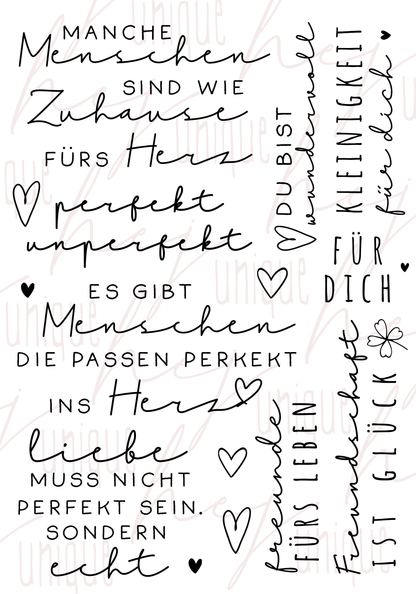 MANCHE
Menschen
SIND WIE
Zuhause
FÜRS Herz
perfekt
unperfekt
ES GIBT
Menschen
DIE PASSEN PERKEKT
INS Herz
liebe
MUSS NICHT
PERFEKT SEIN.
SONDERN
echt
DU BIST
wundervoll
KLEINIGKEIT
für dich
FÜR
DICH
freunde
FÜRS LEBEN
Freundschaft
IST GLÜCK
unique
hej